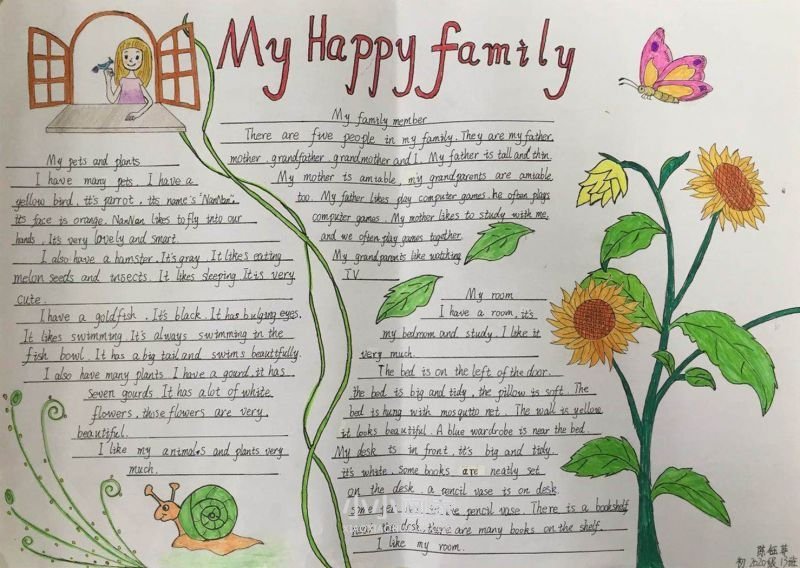 My Happy family
My family member
There are five people in my family. They are my father,
mother, grandfather, grandmother and I. My father is tall and thin.
My mother is amiable, my grandparents are amiable
too. My father likes play computer games. he often plays
computer games. My mother likes to study with me,
and we often play games together.
My grandparents like watching
TV.
My pets and plants
I have many pets. I have a
yellow bird. it's parrot. its name's "NanNan".
its face is orange. NanNan likes to fly into our
hands. It's very lovely and smart.
I also have a hamster. It's gray. It likes eating
melon seeds and insects. It likes sleeping It is very
cute.
I have a goldfish. It's black. It has bulging eyes.
It likes swimming It's always swimming in the
fish bowl. It has a big tail and swims beautifully.
I also have many plants. I have a gourd, it has
seven gourds It has a lot of white
flowers, those flowers are very
beautiful.
I like my animals and plants very
much.
My room
I have a room, it's
my bedroom and study. I like it
very much.
The bed is on the left of the door.
the bed is big and tidy, the pillow is soft. The
bed is hung with mosquito net. The wall is yellow
it looks beautiful. A blue wardrobe is near the bed.
My desk is in front, it's big and tidy.
it's white. Some books are neatly set
on the desk, a pencil vase is on desk.
some pencil vase. There is a bookshelf
the desk, there are many books on the shelf.
I like my room.
陈钰菲
初2020级13班